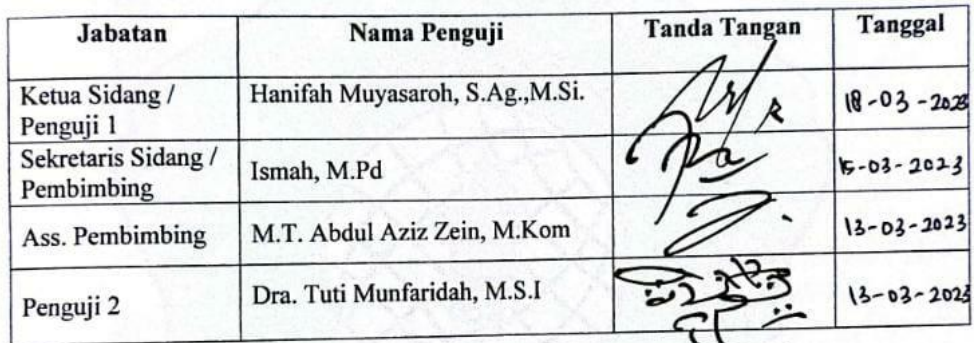 Jabatan Nama Penguji Tanda Tangan Tanggal
Ketua Sidang / Hanifah Muyasaroh, S.Ag.,M.Si. 18-03-2023
Penguji 1
Sekretaris Sidang / Ismah, M.Pd 15-03-2023
Pembimbing
Ass. Pembimbing M.T. Abdul Aziz Zein, M.Kom 13-03-2023
Penguji 2 Dra. Tuti Munfaridah, M.S.I 13-03-2023